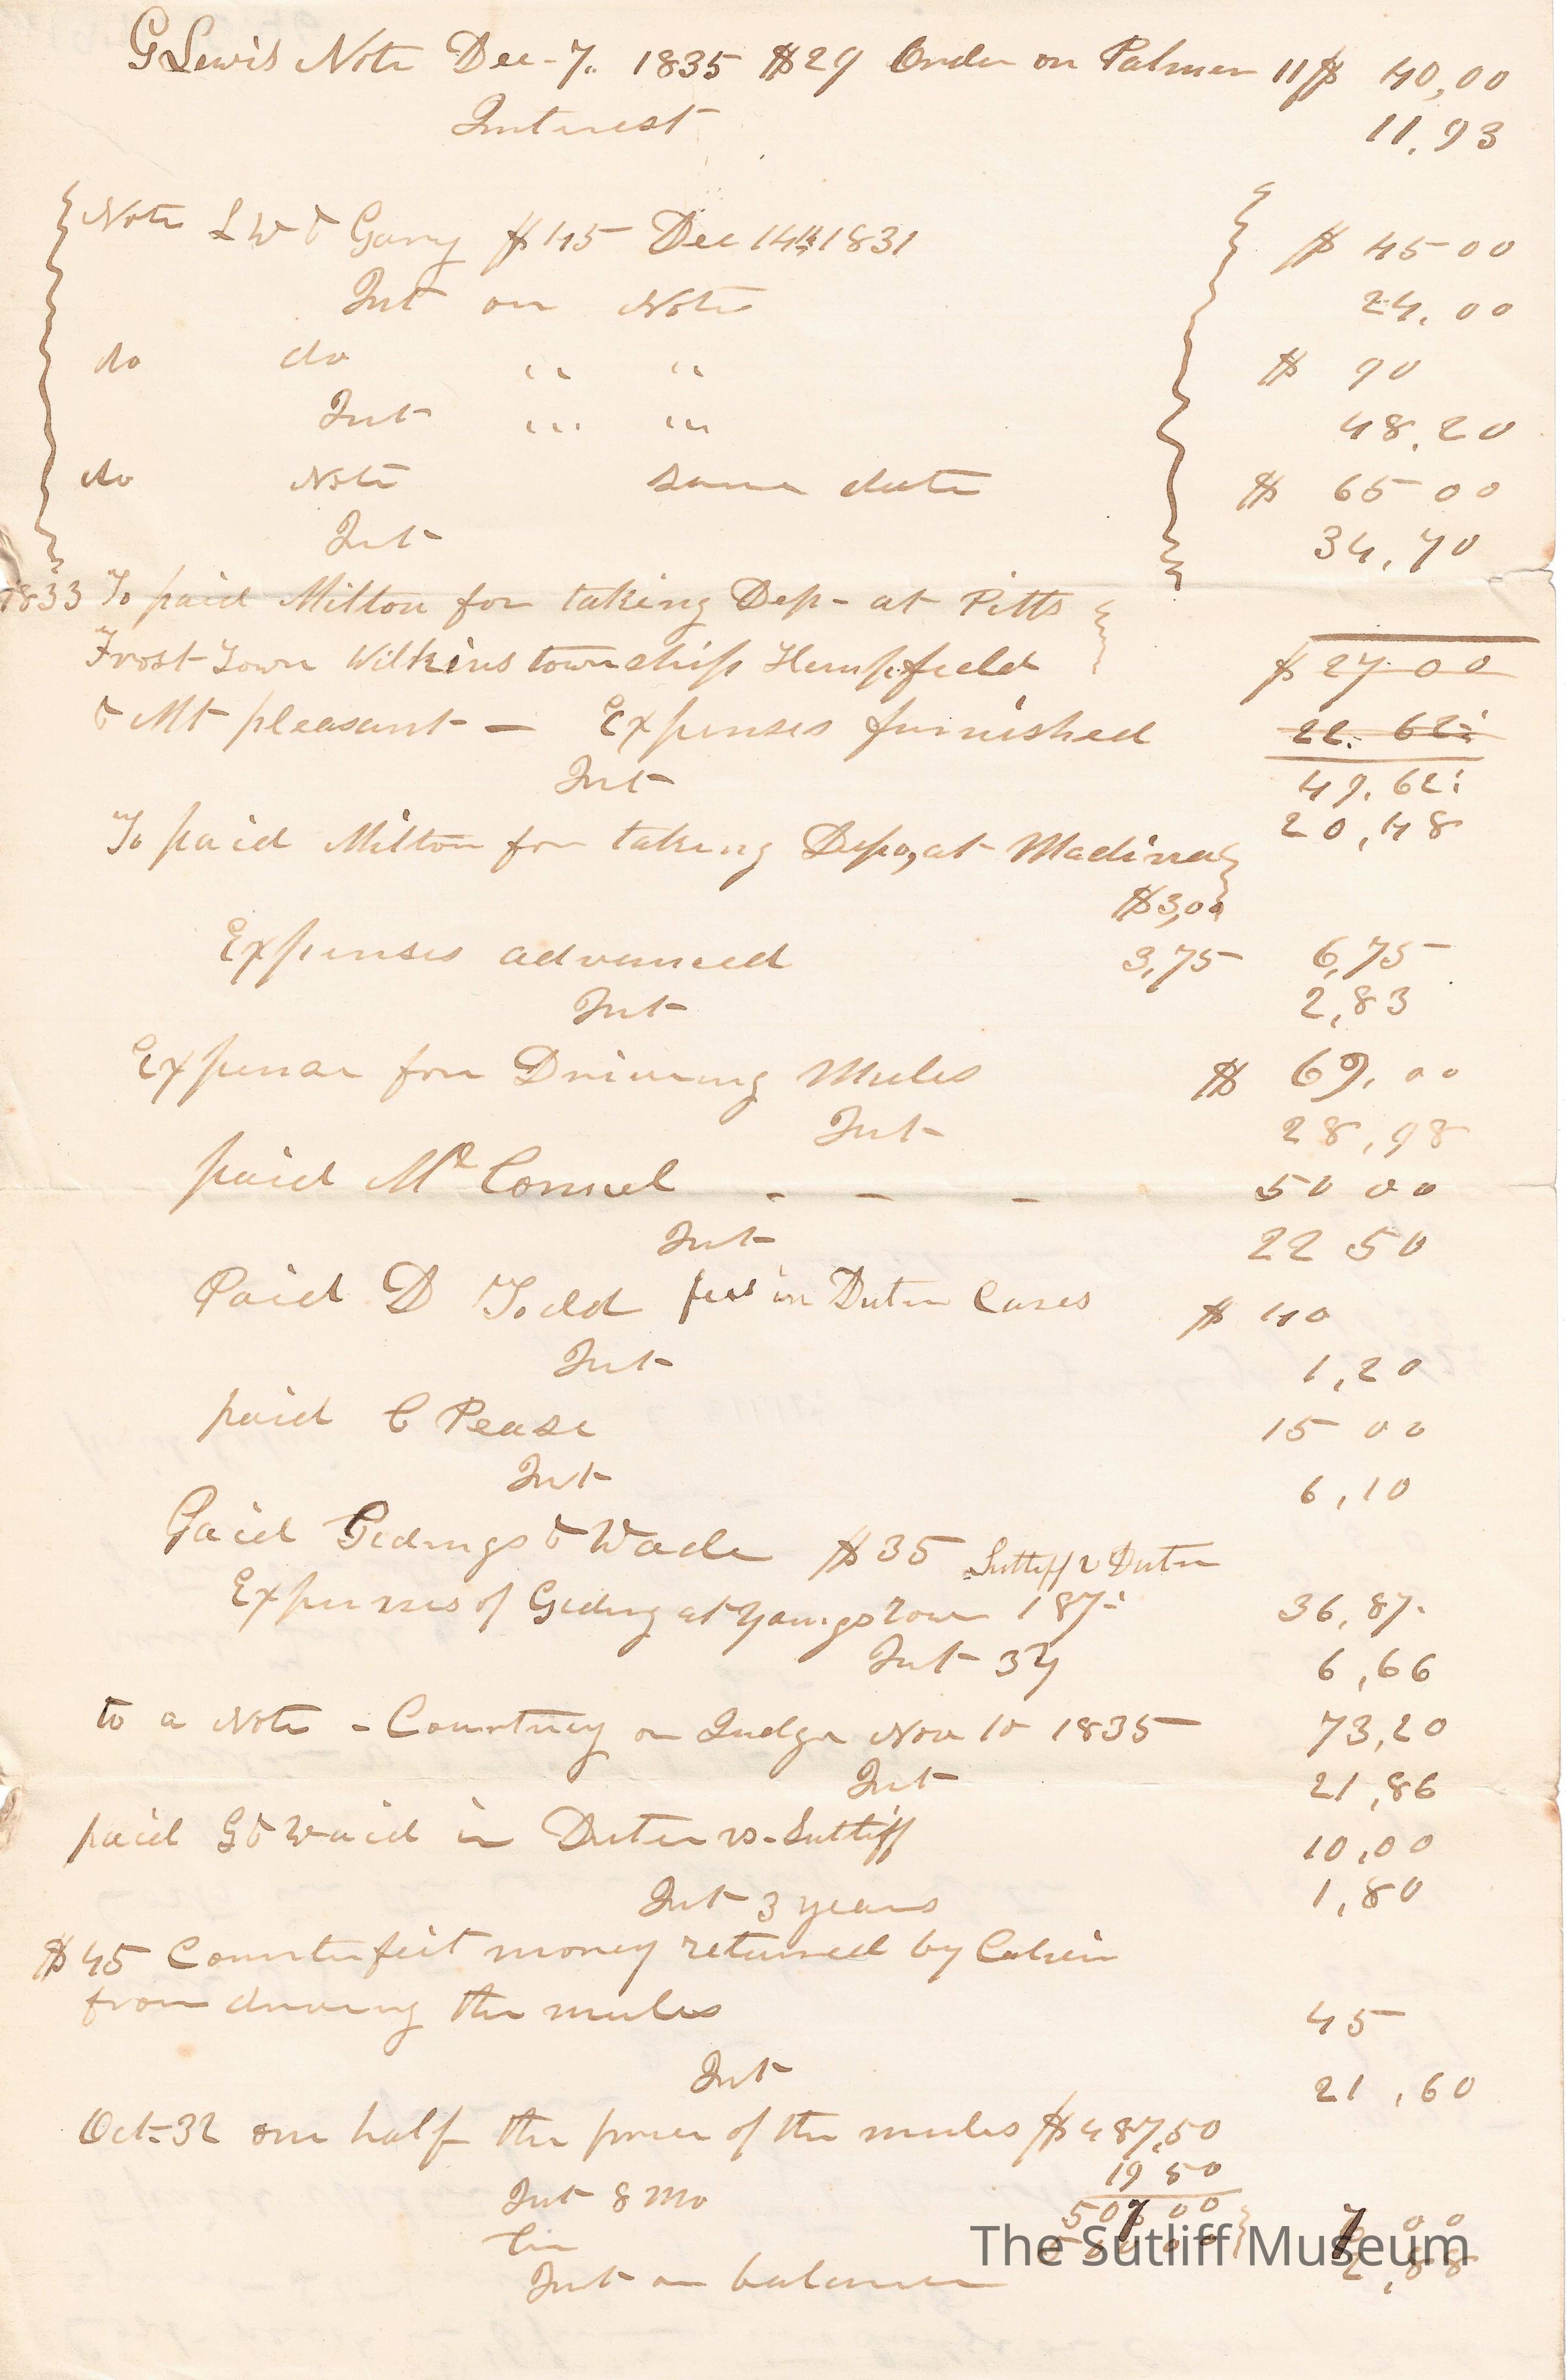 G Lewis Note Dec - 7. 1835 $29 Order on Palmer 11 $ 40,00
Interest 11.93
Note L W & Gary $45 Dec 14th 1831 $ 45 00
Int on Note 24.00
do do " " $ 90
Int " " 48.20
do Note same date $ 65 00
Int 34,70
1833 To paid Milton for taking Dep - at Pitts
Frost Town Wilkins township Hempfield $ 27 00
& Mt pleasant — Expenses furnished 22. 62
Int 49.62
20,48
To paid Milton for taking Depo, at Madina
$3,00
Expenses advanced 3,75 6,75
Int 2,83
Expense for Driving Mules $ 69. 00
Int 28,98
paid Mc Connel - - - 50 00
Int 22 50
Paid D Todd fees in Duter Cases $ 40
Int 1,20
paid C Pease 15 00
Int 6,10
Paid Gidings & Wade $35 Sutliff v Duter
Expenses of Giding at Youngstown 187 36,87
Int 37 6,66
to a Note - Courtney on Judge Nov 10 1835 73,20
Int 21,86
paid G & Waid in Duter vs. Sutliff 10,00
Int 3 years 1,80
$45 Counterfeit money returned by Calvin
from driving the mules 45
Int 21,60
Oct - 32 one half the price of the mules $487,50
Int 8 Mo 19 50
507 00 7 00
Int on balance 2,88
The Sutliff Museum